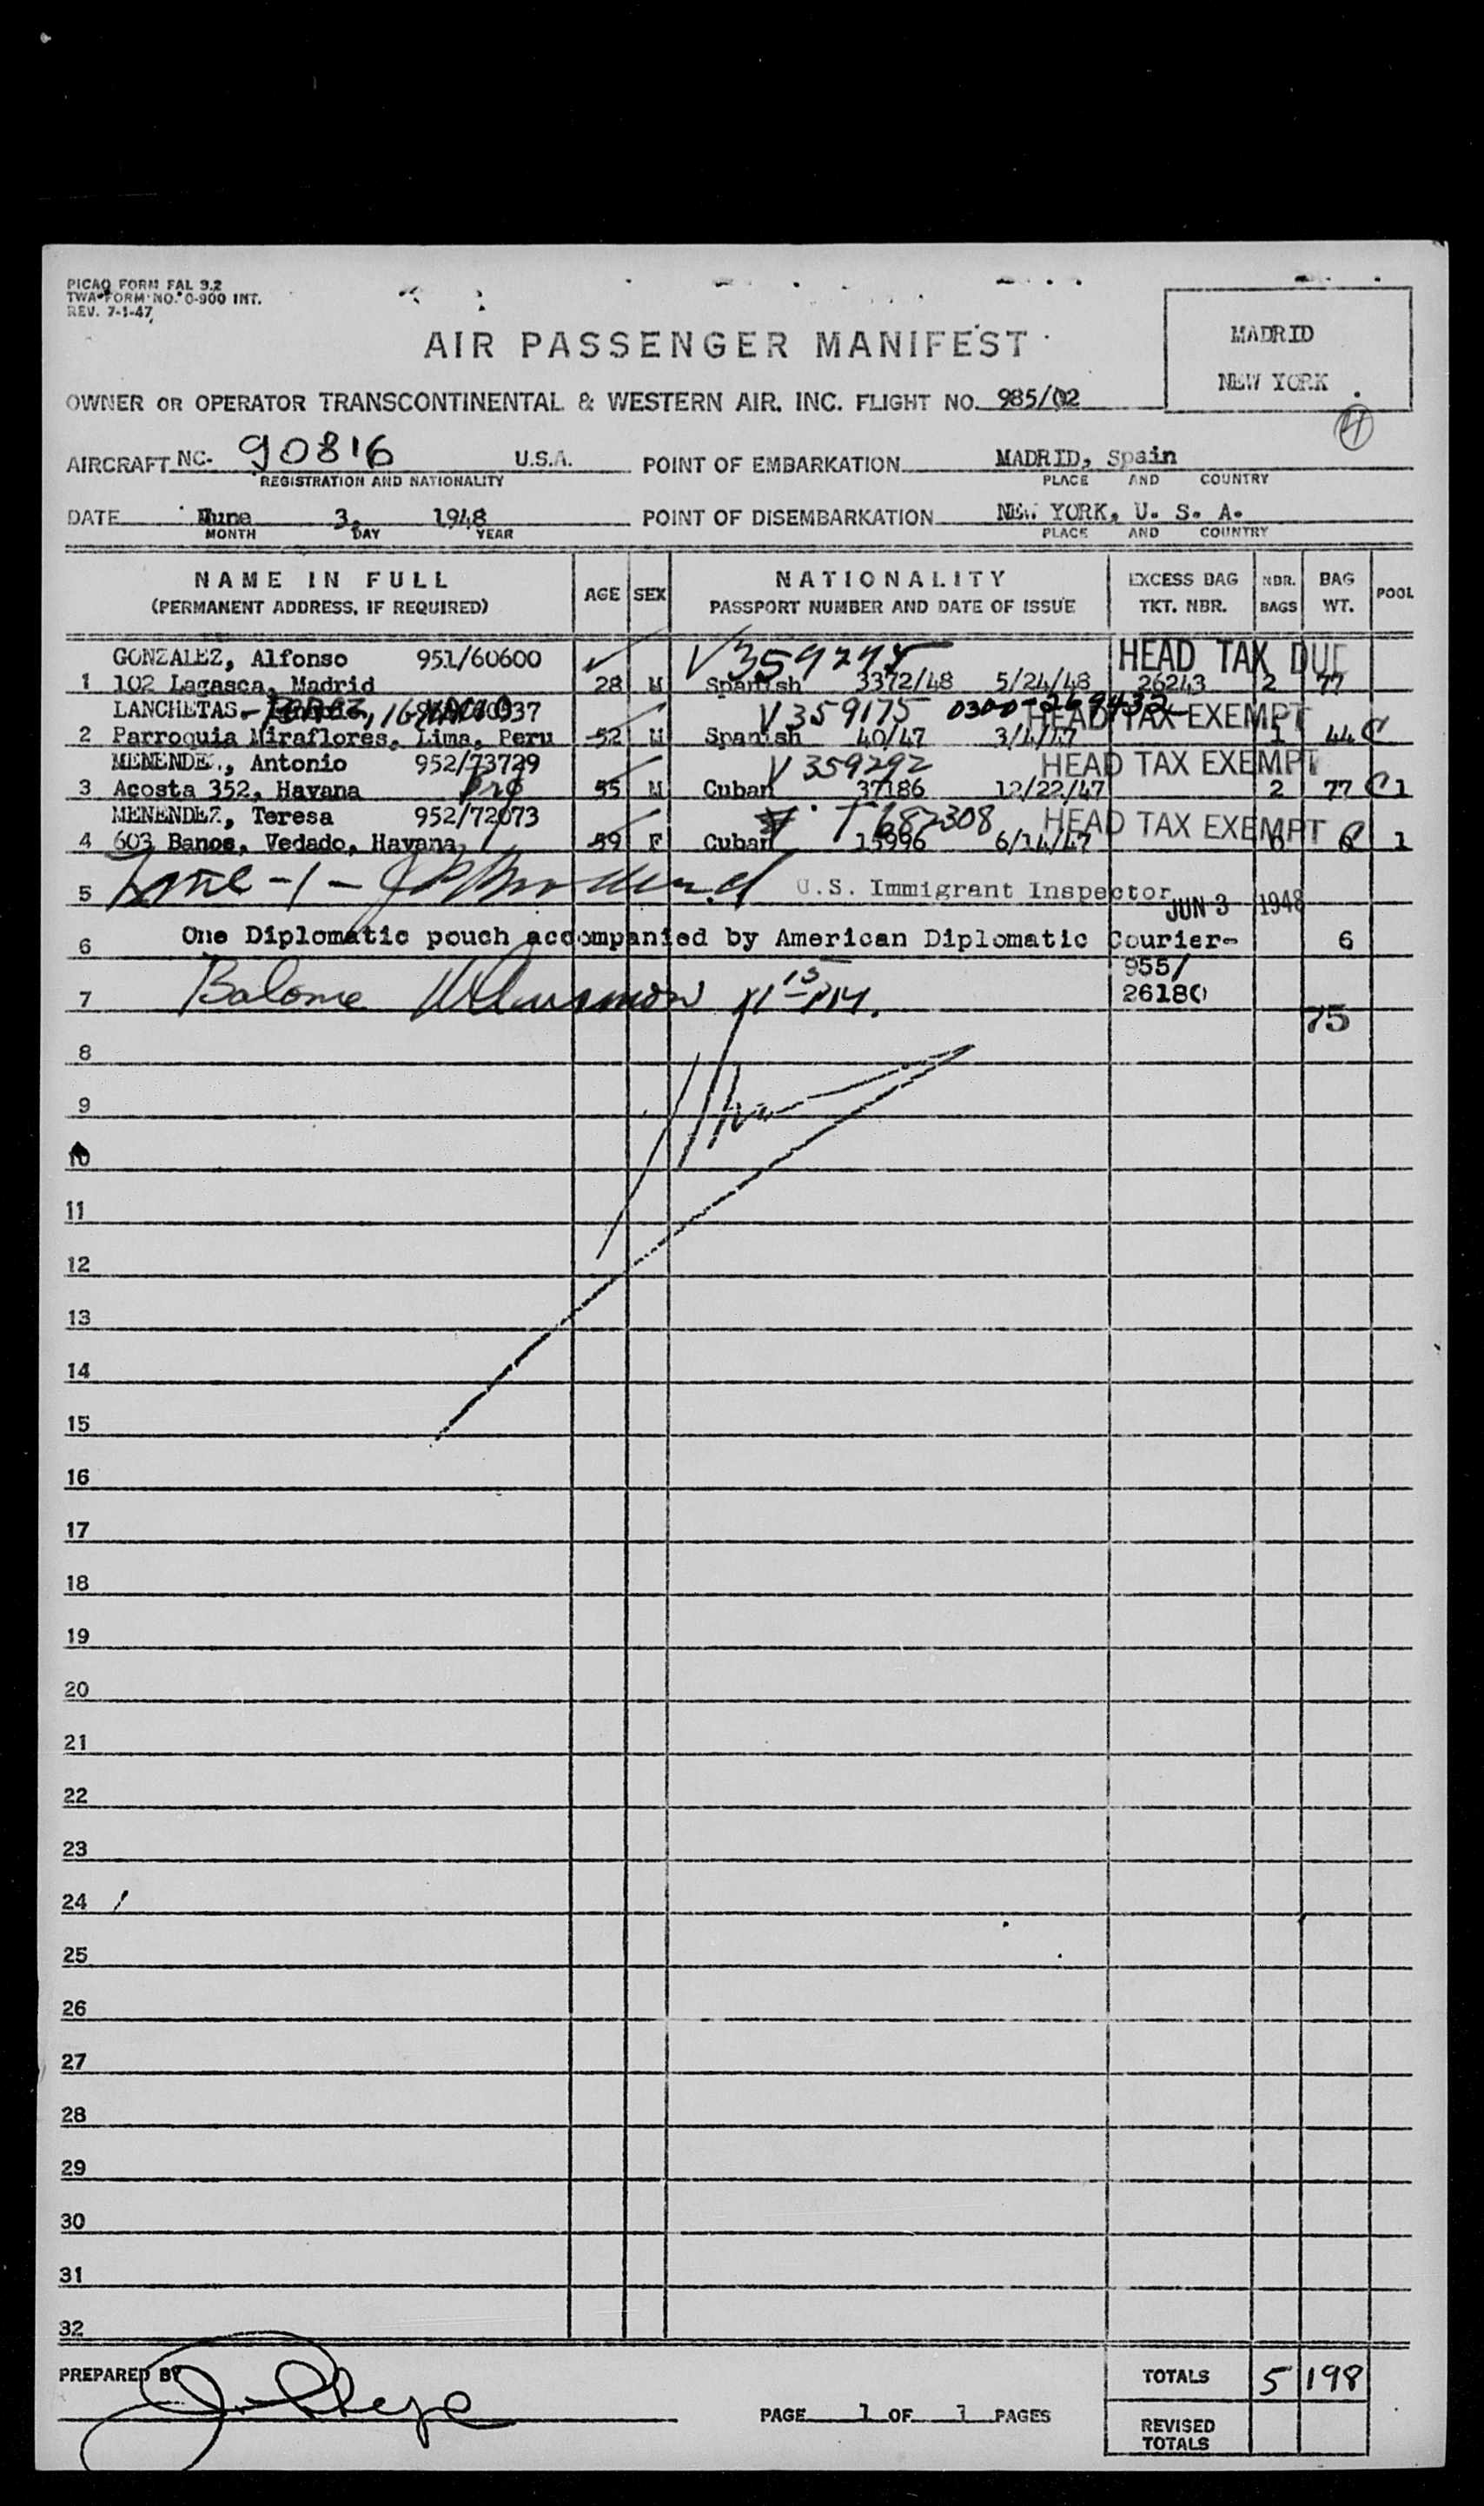 PICAO FORM FAL 3.2
TWA FORM NO. O-900 INT.
REV. 7-1-47
AIR PASSENGER MANIFEST
MADRID
NEW YORK
OWNER OR OPERATOR TRANSCONTINENTAL & WESTERN AIR. INC. FLIGHT NO. 985/02
4
AIRCRAFT NC- 90816 U.S.A. POINT OF EMBARKATION MADRID, Spain
REGISTRATION AND NATIONALITY PLACE AND COUNTRY
DATE June 3, 1948 POINT OF DISEMBARKATION NEW YORK, U. S. A.
MONTH DAY YEAR PLACE AND COUNTRY
NAME IN FULL AGE SEX NATIONALITY EXCESS BAG NBR. BAG POOL
(PERMANENT ADDRESS, IF REQUIRED) PASSPORT NUMBER AND DATE OF ISSUE TKT. NBR. BAGS WT.
GONZALEZ, Alfonso 951/60600 HEAD TAX DUE
1 102 Lagasca, Madrid 28 M Spanish 3372/48 5/24/48 26243 2 77
LANCHETAS- V359175 HEAD TAX EXEMPT
2 Parroquia Miraflores, Lima, Peru 52 M Spanish 40/47 3/4/47 1 44 C
MENENDEZ, Antonio 952/73729 V359292 HEAD TAX EXEMPT
3 Acosta 352, Havana 55 M Cuban 37186 12/22/47 2 77 C 1
MENENDEZ, Teresa 952/72073 T682308 HEAD TAX EXEMPT
4 603 Banos, Vedado, Havana 59 F Cuban 15996 6/14/47 1
5 U.S. Immigrant Inspector JUN 3 1948
6 One Diplomatic pouch accompanied by American Diplomatic Courier- 6
955/
7 26180
75
8
9
10
11
12
13
14
15
16
17
18
19
20
21
22
23
24
25
26
27
28
29
30
31
32
PREPARED BY TOTALS 5 198
PAGE 1 OF 1 PAGES
REVISED
TOTALS